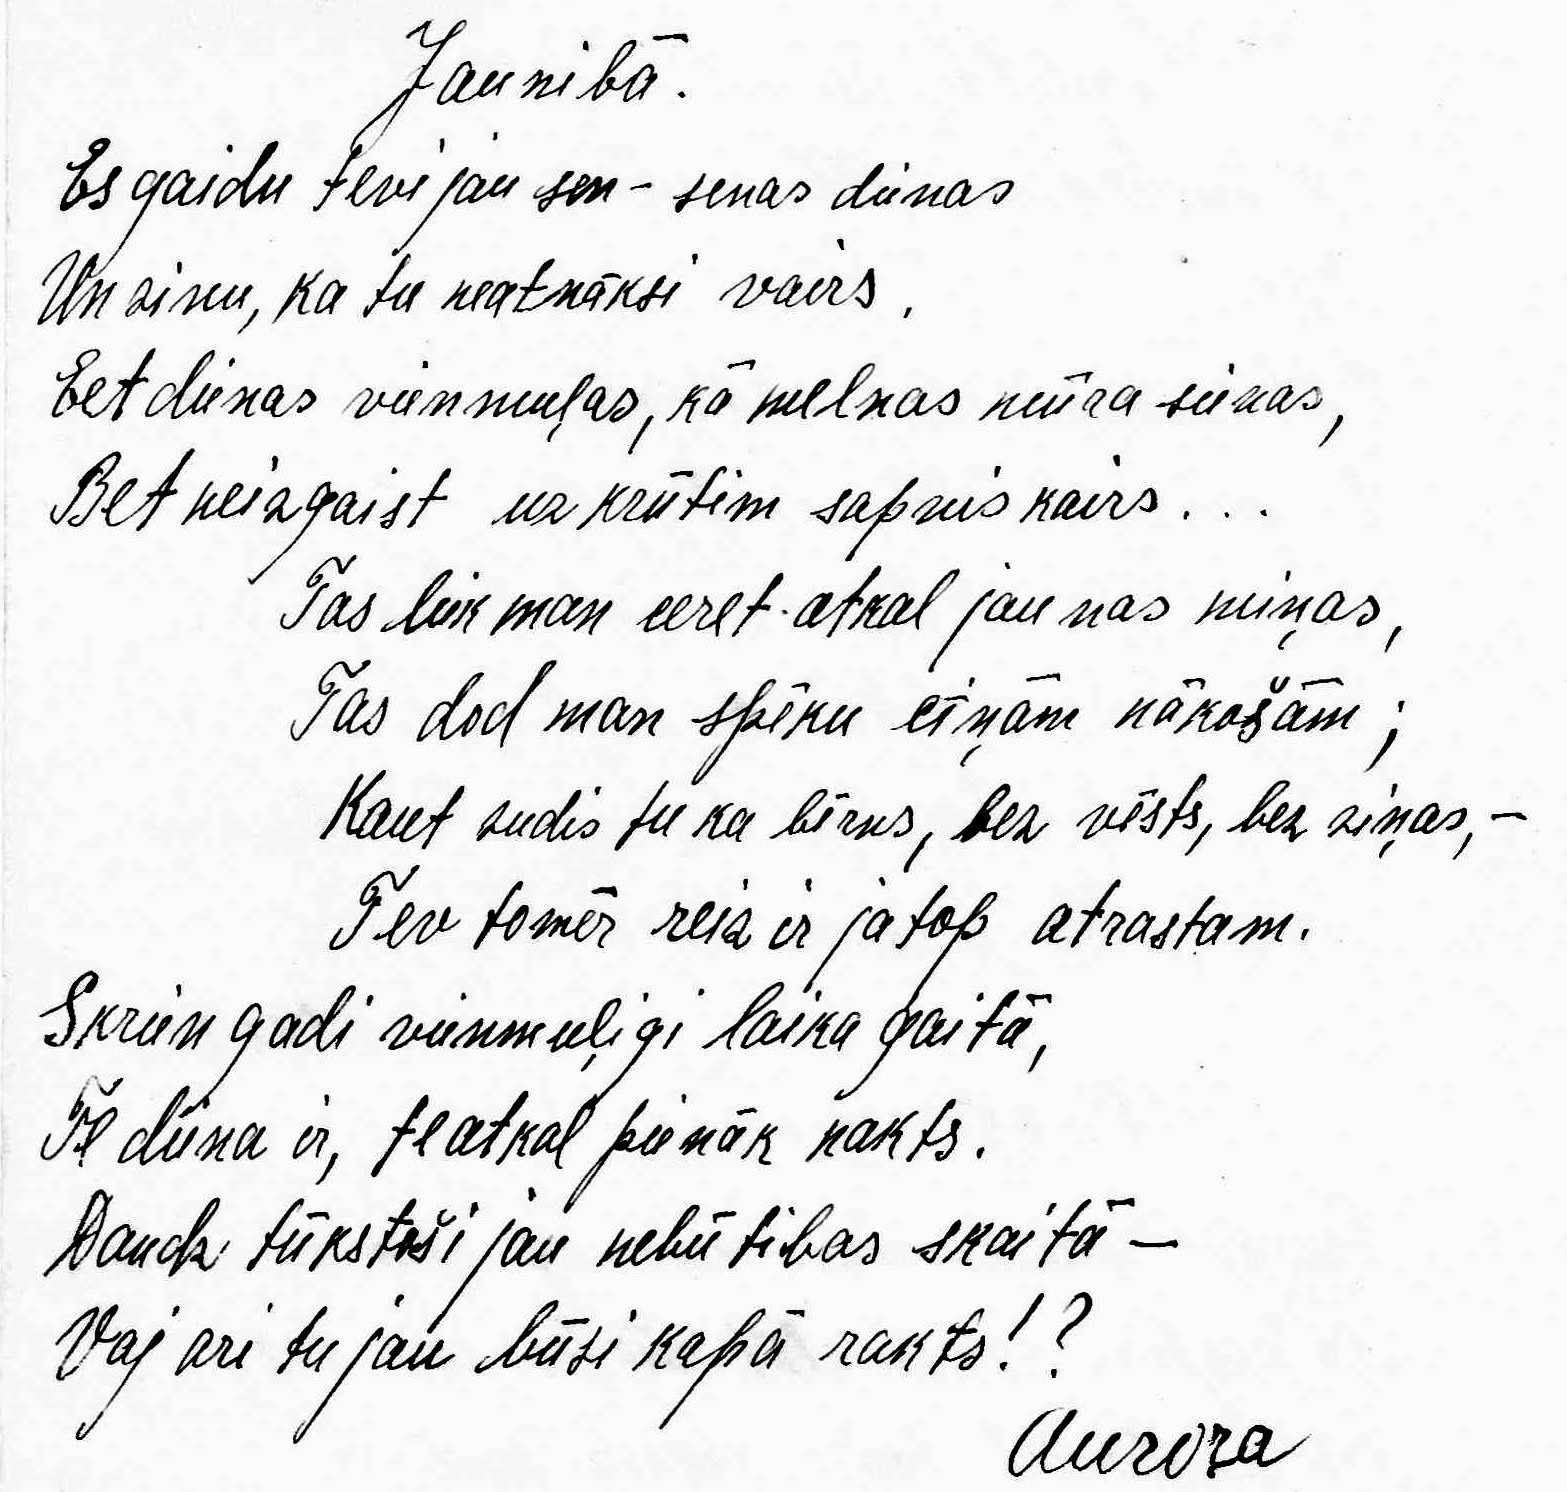 Jaunibā.
Es gaidu tevi jau sen - senas dienas
Un zinu, ka tu neatnāksi vairs,
Eet dienas vienmuļas, kā melnas mūra sienas,
Bet neizgaist uz krūtim sapnis kairs...
Tas liek man ceret atkal jaunas miņas,
Tas dod man spēku cīņām nākošām;
Kaut zudis tu ka bērns, bez vēsts, bez ziņas, -
Tev tomēr reiz ir jatop atrastam.
Skrien gadi vienmuļigi laika gaitā,
Te diena ir, te atkal pienāk nakts.
Daudz tūkstoši jau nebūtibas skaitā -
Vaj ari tu jau būsi kapā rakts!?
Aurora